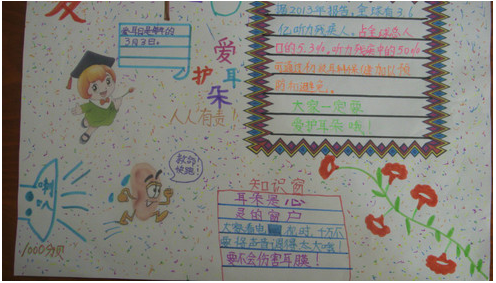 爱耳日
爱耳日是每年的
3月3日。
爱
护耳
朵
人人有责!
据2013年报告,全球有3.6
亿听力残疾人,占全球总人
口的5.3%,听力残疾中的50%
可通过初级耳科保健加以预
防和避免。
大家一定要
爱护耳朵哦!
救命
快跑
1000分贝
知识窗
耳朵是心
灵的窗户
大家看电视时,千万不
要将声音调得太大哦!
要不会伤害耳膜!